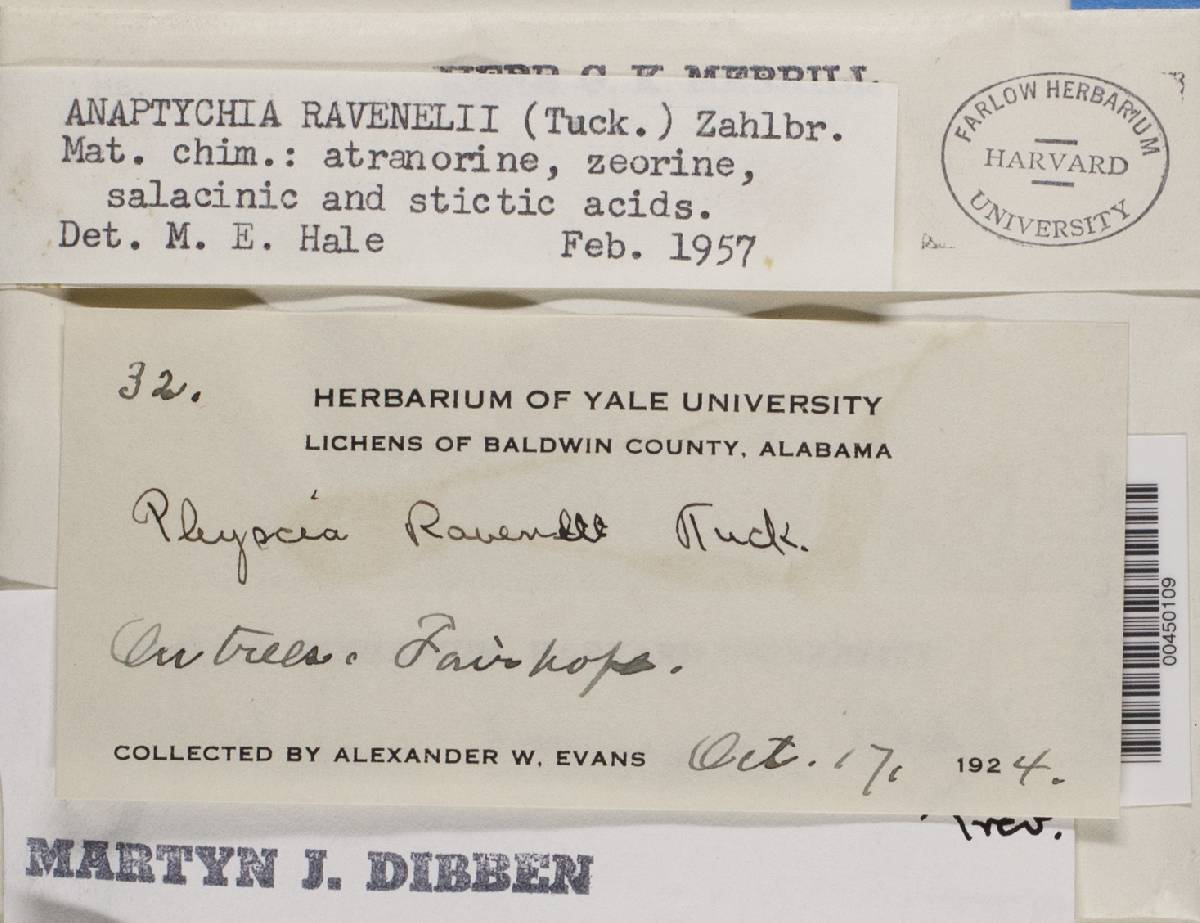 HERB. G. K. MERRILL
ANAPTYCHIA RAVENELII (Tuck.) Zahlbr.
Mat. chim.: atranorine, zeorine,
salacinic and stictic acids.
Det. M. E. Hale Feb. 1957
FARLOW HERBARIUM
HARVARD
UNIVERSITY
32.
HERBARIUM OF YALE UNIVERSITY
LICHENS OF BALDWIN COUNTY, ALABAMA
Physcia Ravenelii Tuck.
On trees. Fairhope.
COLLECTED BY ALEXANDER W. EVANS Oct. 17, 1924.
00450109
Trev.
MARTYN J. DIBBEN